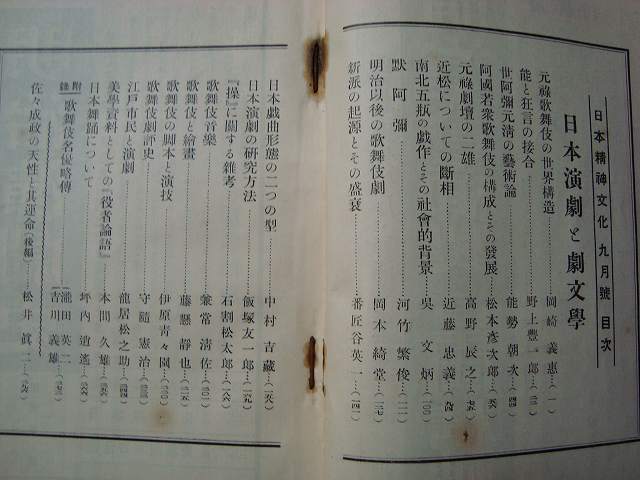 日本精神文化 九月號 目次
日本演劇と劇文學
元祿歌舞伎の世界構造 岡崎義惠 (一)
能と狂言の接合 野上豐一郎
世阿彌元清の藝術論 能勢朝次
阿國若衆歌舞伎の構成とその發展 松本彥次郎
元祿劇壇の二雄 高野辰之
近松についての斷相 近藤忠義
南北五瓶の戲作とその社會的背景 吳文炳 (一〇〇)
默阿彌 河竹繁俊 (一一一)
明治以後の歌舞伎劇 岡本綺堂
新派の起源とその盛衰 番匠谷英一 (一四一)
日本戲曲形態の二つの型 中村吉藏
日本演劇の硏究方法 飯塚友一郎
『操』に關する雜考 石割松太郎
歌舞伎音樂 兼常淸佐 (二〇一)
歌舞伎と繪畫 藤懸靜也
歌舞伎の脚本と演技 伊原青々園
歌舞伎劇評史 守隨憲治
江戸市民と演劇 龍居松之助
美學資料としての『役者論語』 本間久雄
日本舞踊について 坪內逍遙
附錄 歌舞伎名優略傳 瀧田英二 吉川義雄
佐々成政の天性と其運命(後編) 松井眞二